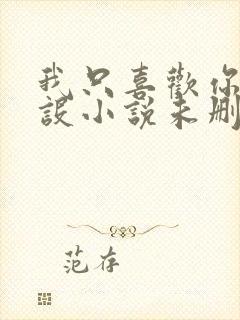 我只喜歡你
設小說未刪
范存